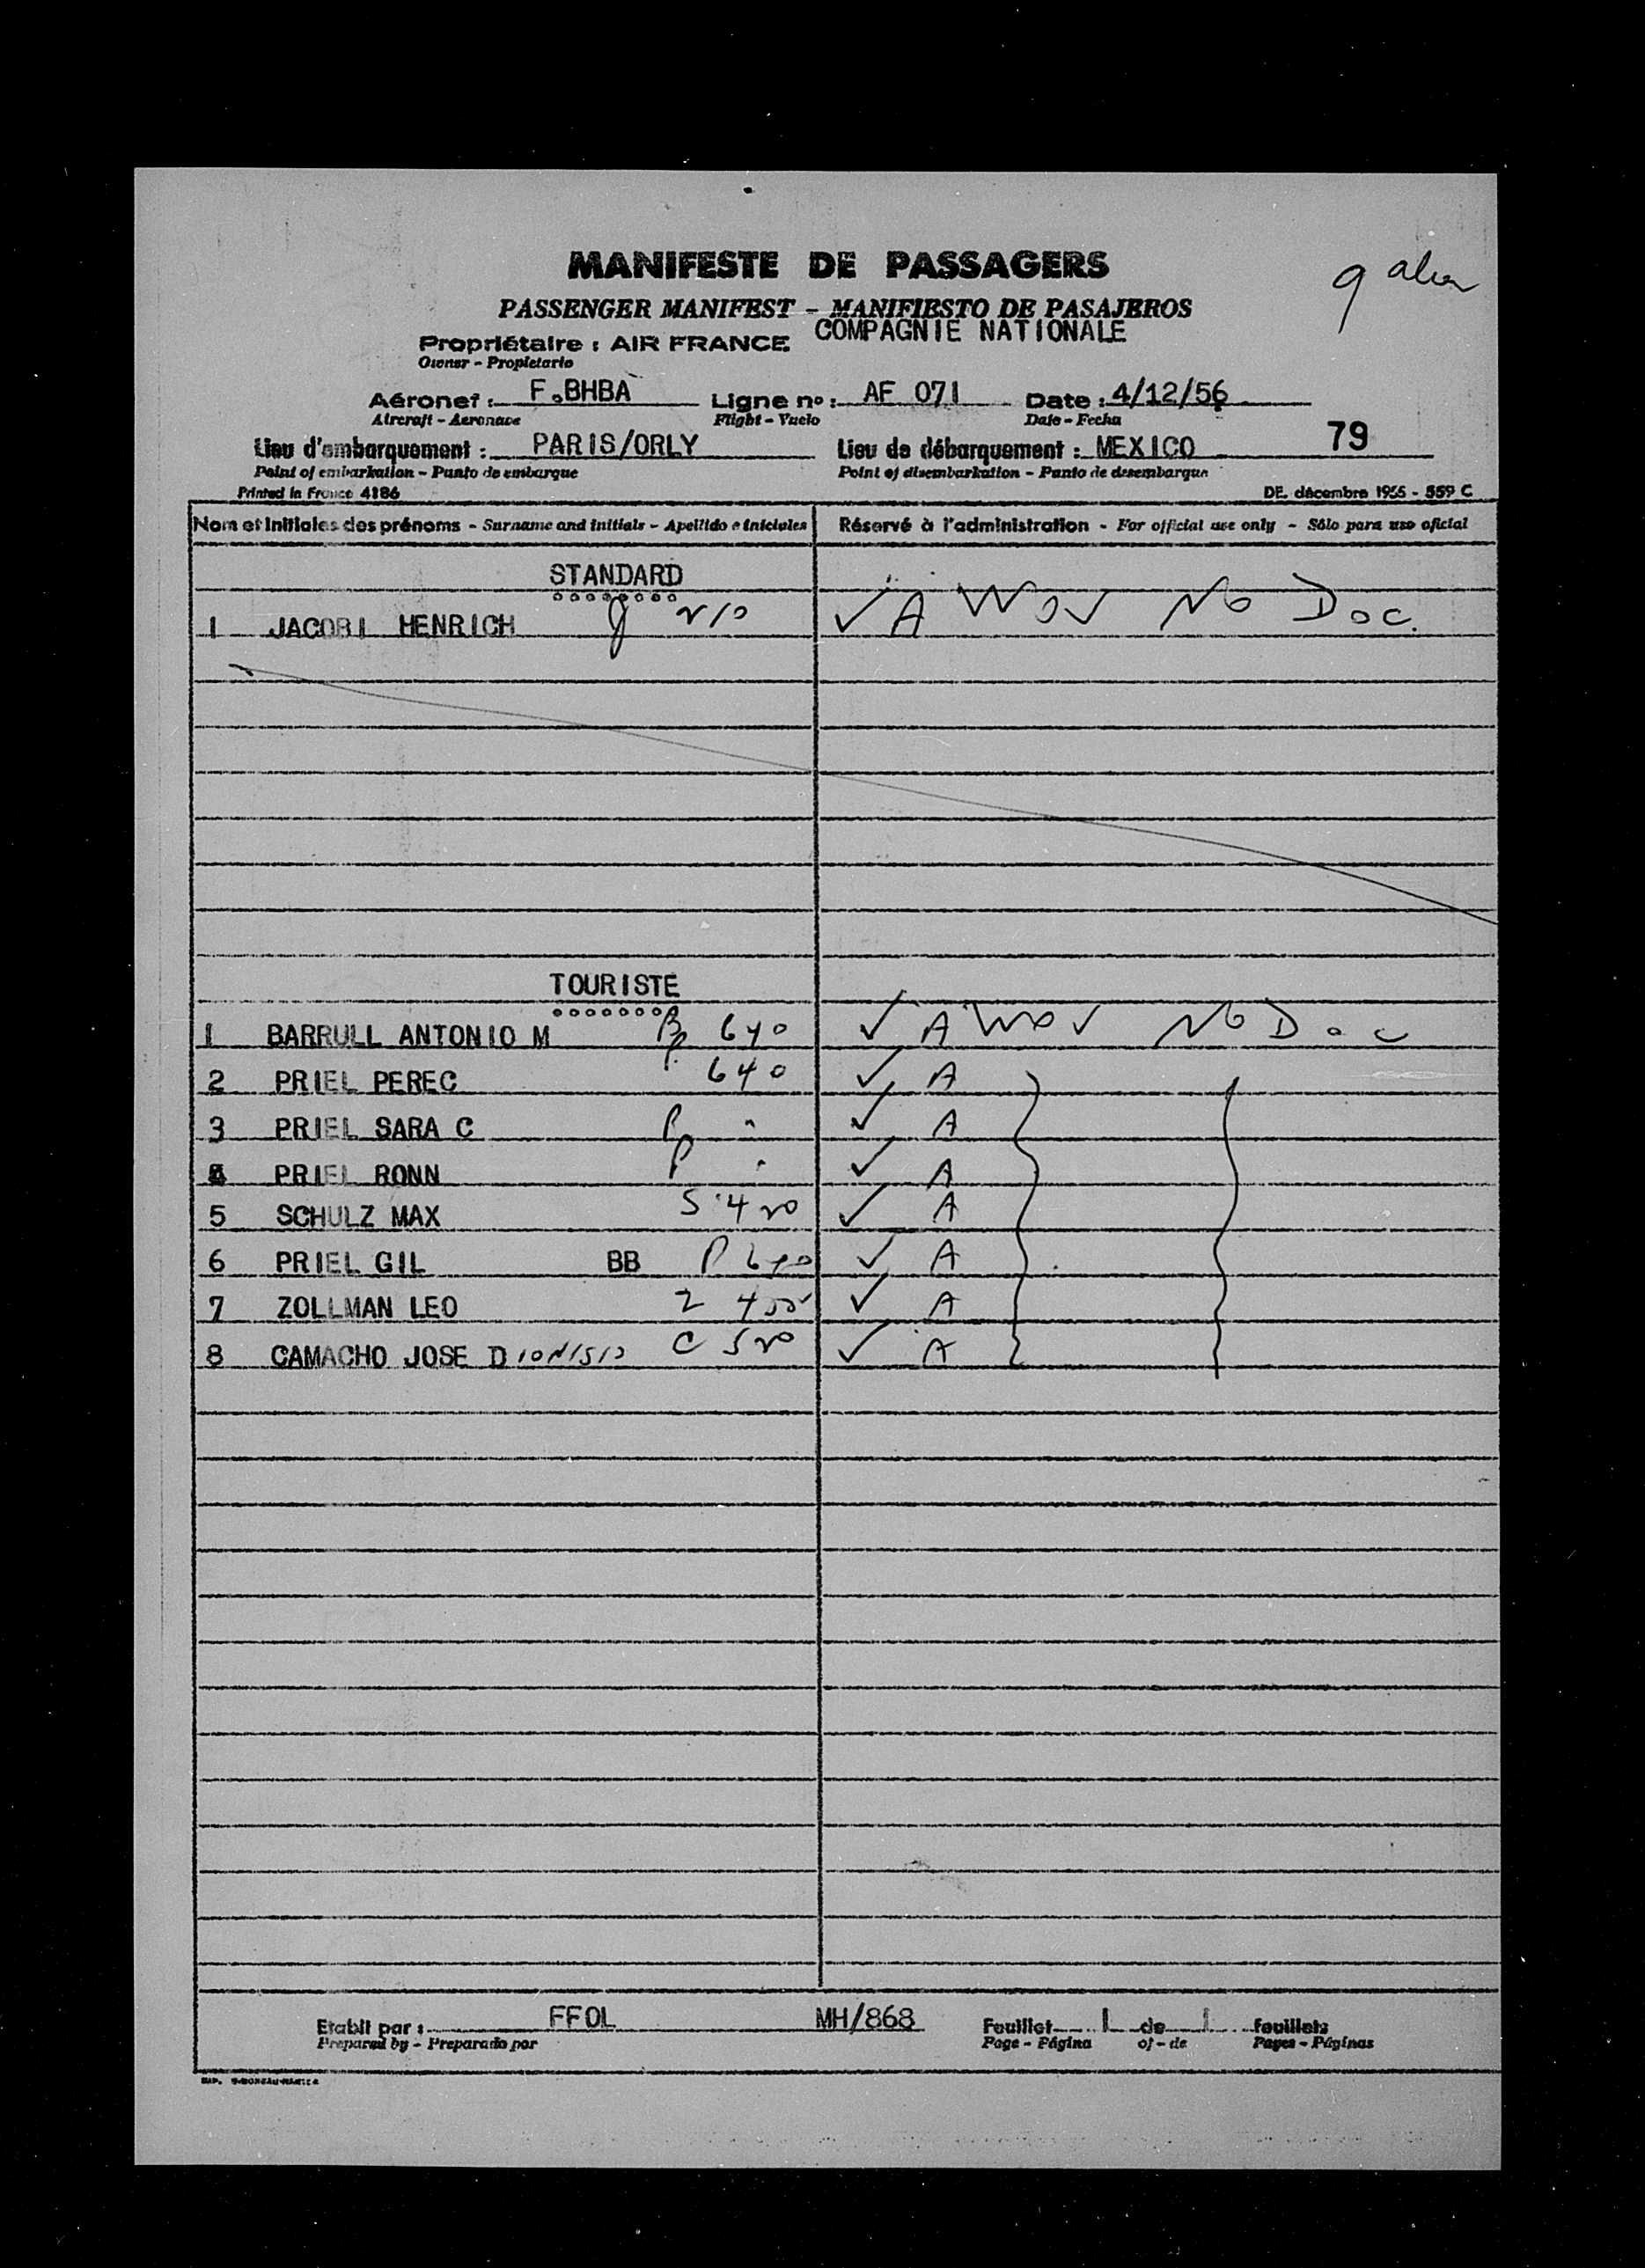 MANIFESTE DE PASSAGERS
9 alien
PASSENGER MANIFEST - MANIFIESTO DE PASAJEROS
Propriétaire : AIR FRANCE COMPAGNIE NATIONALE
Owner - Propietario
Aéronef : F.BHBA Ligne n° : AF 071 Date : 4/12/56
Aircraft - Aeronave Flight - Vuelo Date - Fecha
Lieu d'embarquement : PARIS/ORLY Lieu de débarquement : MEXICO 79
Point of embarkation - Punto de embarque Point of disembarkation - Punto de desembarque
Printed in France 4186 DE. décembre 1955 - 559 C
Nom et initiales des prénoms - Surname and initials - Apellido e iniciales Réservé à l'administration - For official use only - Sólo para uso oficial
STANDARD
1 JACOBI HENRICH J 210 ✓ A WOV No Doc.
TOURISTE
1 BARRULL ANTONIO M B 640 ✓ A WOV No Doc
2 PRIEL PEREC P 640 ✓ A
3 PRIEL SARA C P " ✓ A
4 PRIEL RONN P " ✓ A
5 SCHULZ MAX S 420 ✓ A
6 PRIEL GIL BB P 640 ✓ A
7 ZOLLMAN LEO Z ✓ A
8 CAMACHO JOSE DIONISIO C 520 ✓ A
Etabli par : FFOL MH/868 Feuillet 1 de 1 feuillets
Prepared by - Preparado por Page - Página of - de Pages - Páginas